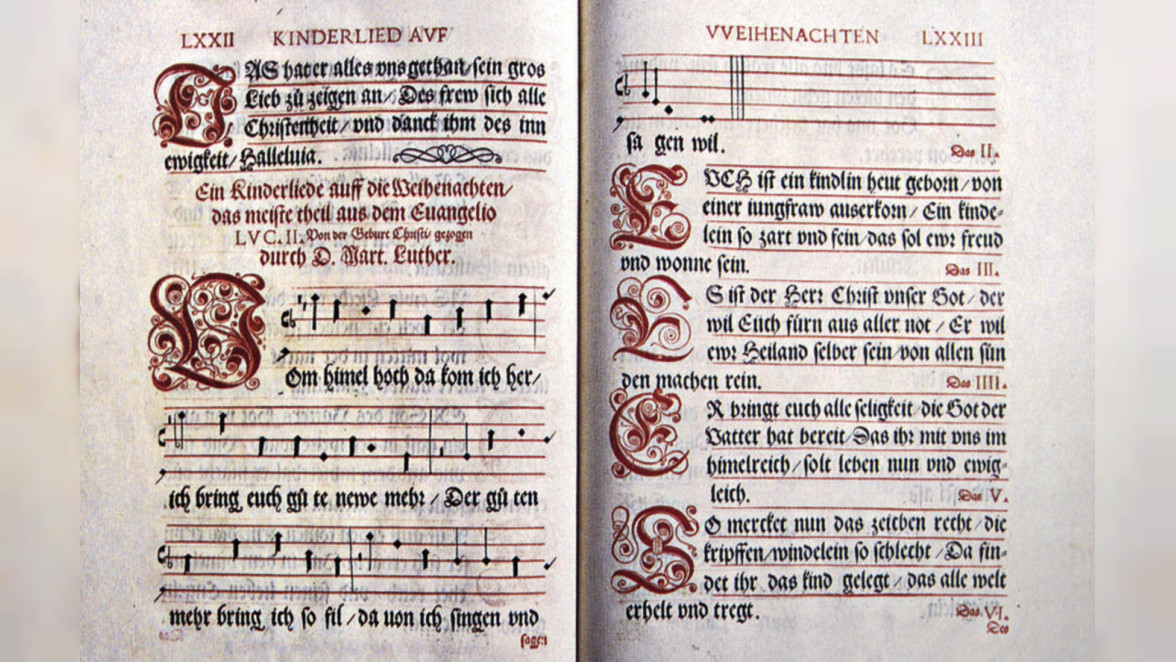 LXXII KINDERLIED AVF
DAS hat er alles vns gethan/sein gros
Lieb zů zeigen an/Des frew sich alle
Christenheit/vnd danck ihm des inn
ewigkeit/Halleluia.
Ein Kinderliede auff die Weihenachten/
das meiste theil aus dem Euangelio
LVC. II. Von der Geburt Christi/ gezogen
durch D. Mart. Luther.
VOm himel hoch da kom ich her/
ich bring euch gů te newe mehr/Der gů ten
mehr bring ich so fil/da uon ich singen vnd
sagen
VVEIHENACHTEN LXXIII
sa gen wil.
Das II.
EVCH ist ein kindlin heut geborn/von
einer iungfraw auserkorn/Ein kinde-
lein so zart vnd fein/das sol ewr freud
vnd wonne sein.
Das III.
ES ist der Herr Christ vnser Got/der
wil Euch fürn aus aller not/Er wil
ewr Heiland selber sein/von allen sün
den machen rein.
Das IIII.
ER bringt euch alle seligkeit/die Got der
Vatter hat bereit/Das ihr mit vns im
himelreich/solt leben nun vnd ewig-
leich.
Das V.
SO mercket nun das zeichen recht/die
kripffen/windelein so schlecht/Da fin-
det ihr das kind gelegt/das alle welt
erhelt vnd tregt.
Das VI.
Des